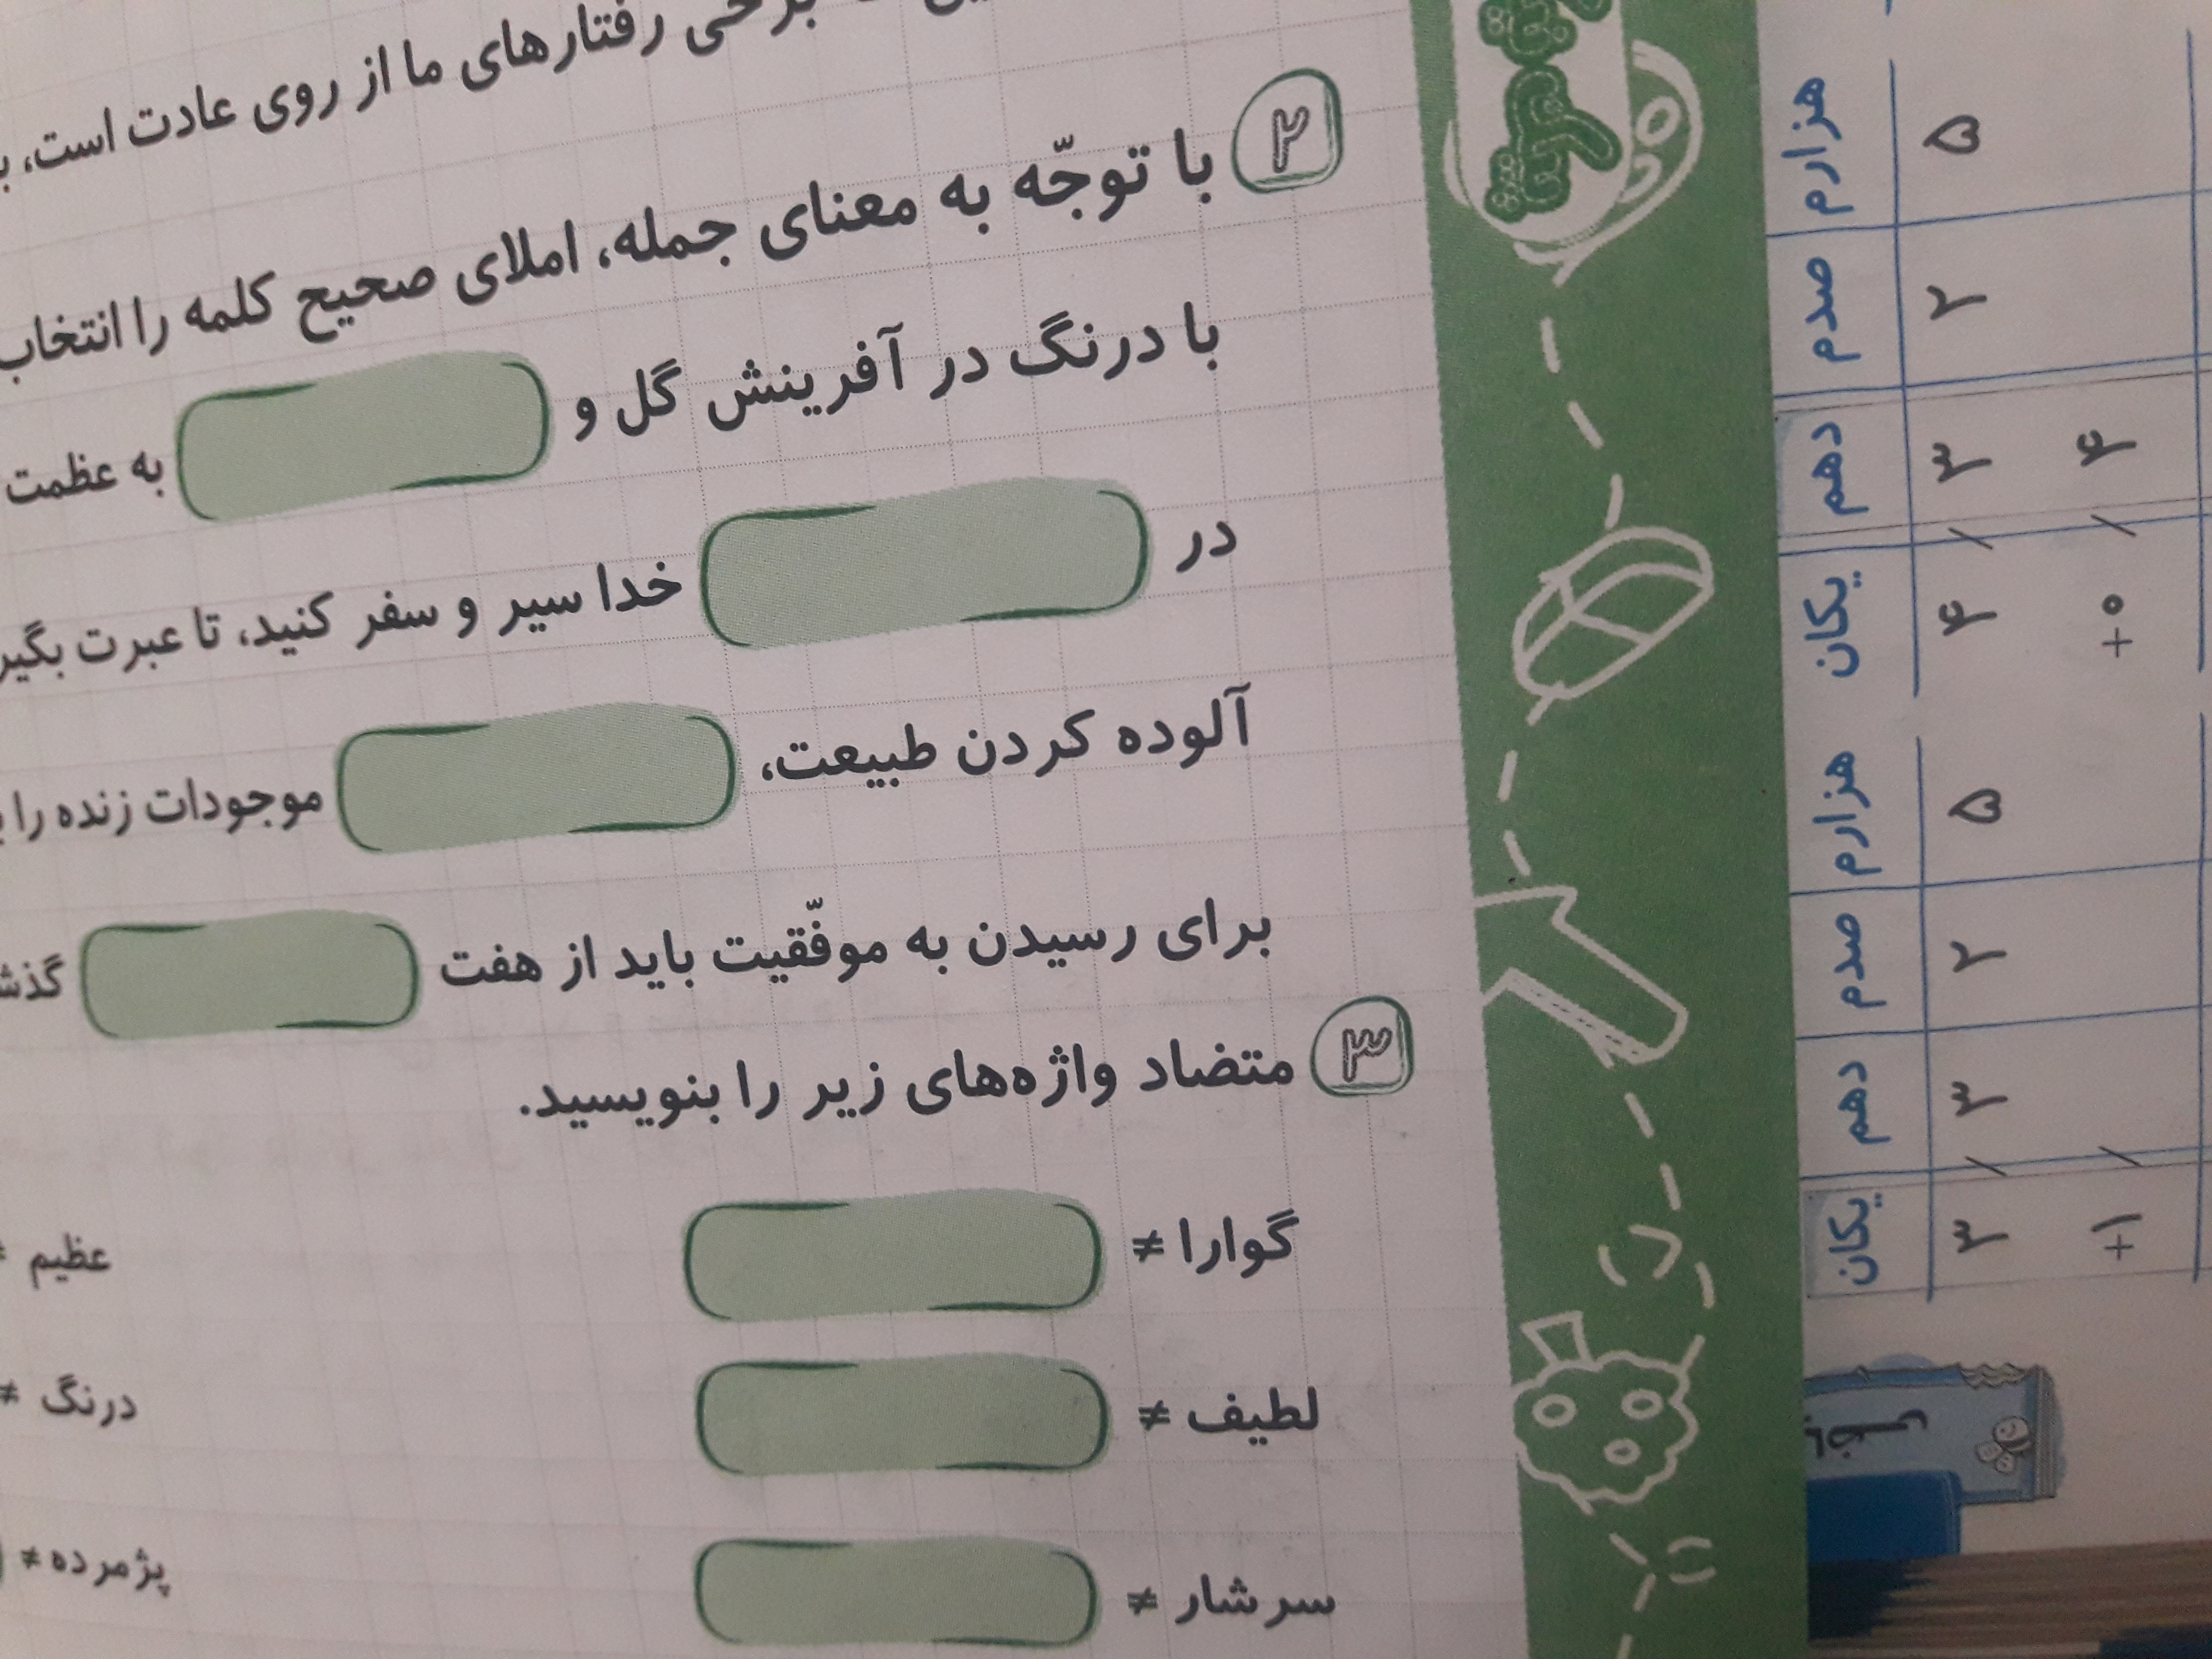 برخی رفتارهای ما از روی عادت است،
۲ با توجّه به معنای جمله، املای صحیح کلمه را انتخاب
با درنگ در آفرینش گل و
به عظمت
در
خدا سیر و سفر کنید، تا عبرت بگیر
آلوده کردن طبیعت،
موجودات زنده را
برای رسیدن به موفّقیت باید از هفت
گذش
۳ متضاد واژه‌های زیر را بنویسید.
گوارا ≠
عظیم ≠
لطیف ≠
درنگ ≠
سرشار ≠
پژمرده ≠
یکان دهم صدم هزارم
۳ / ۳ ۲ ۵
+۱ /
یکان دهم صدم هزارم
۴ / ۳ ۲ ۵
+۰ / ۴